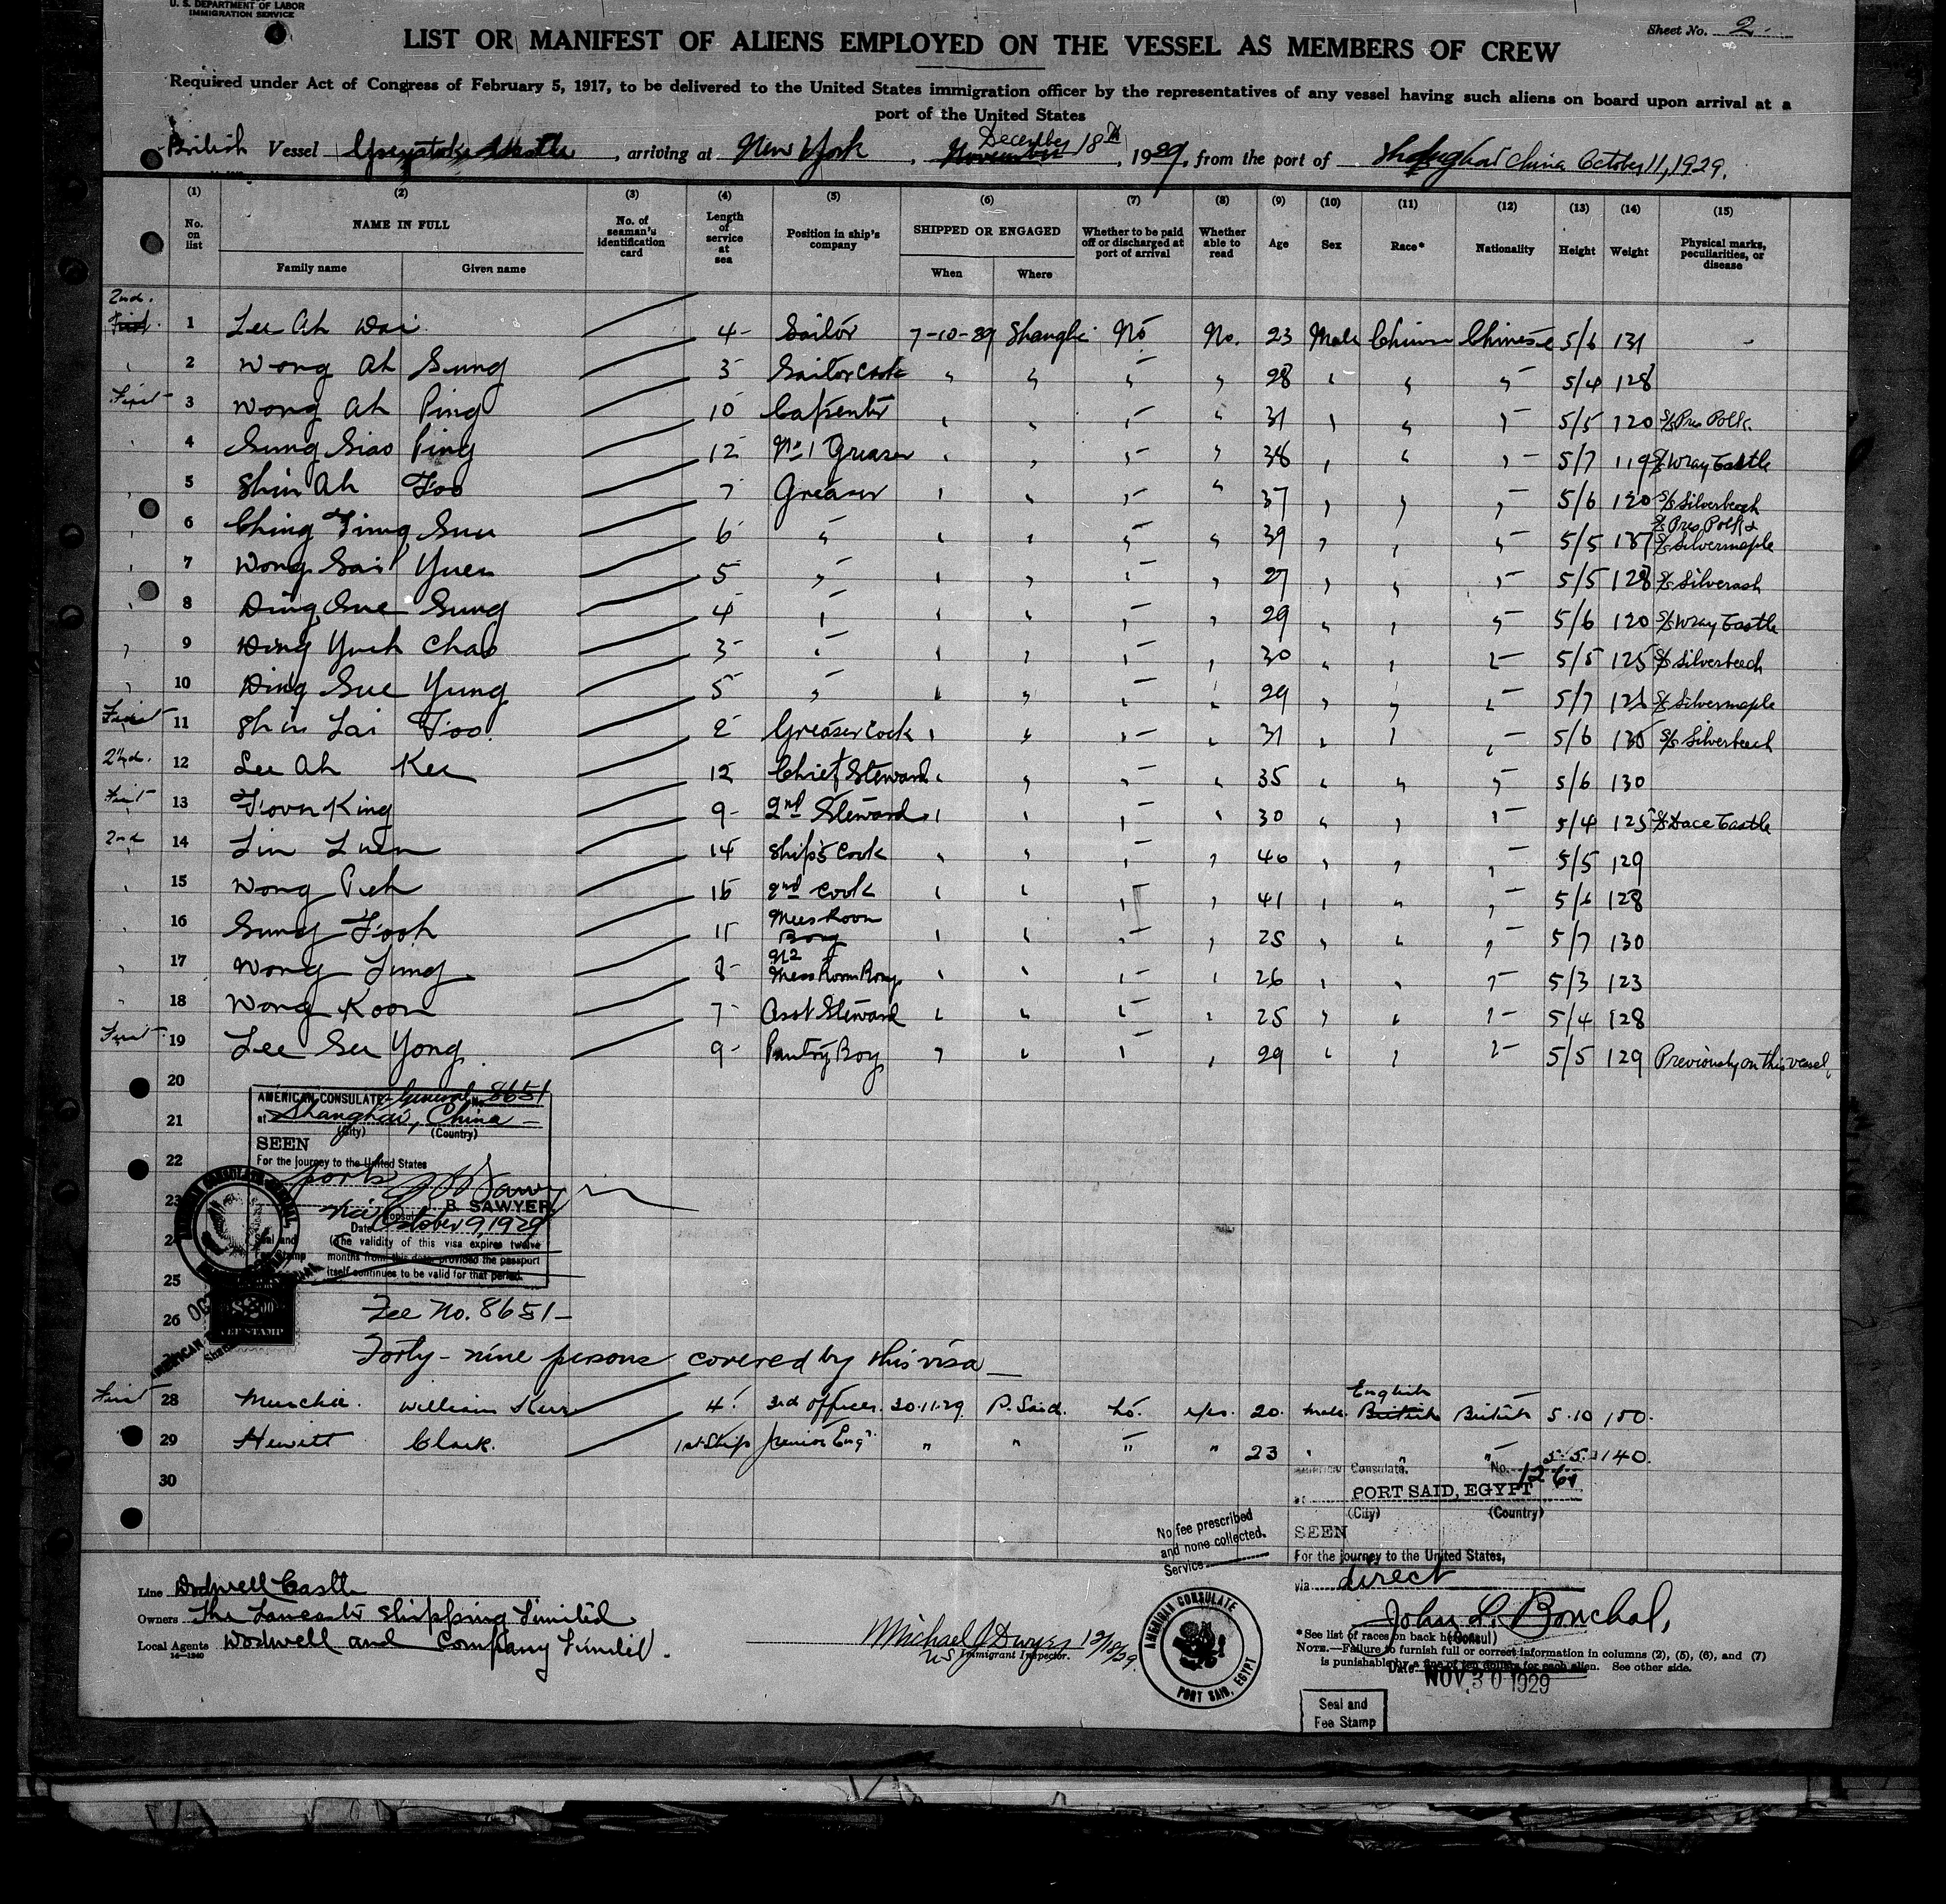 U. S. DEPARTMENT OF LABOR
IMMIGRATION SERVICE
Sheet No. 2
LIST OR MANIFEST OF ALIENS EMPLOYED ON THE VESSEL AS MEMBERS OF CREW
Required under Act of Congress of February 5, 1917, to be delivered to the United States immigration officer by the representatives of any vessel having such aliens on board upon arrival at a
port of the United States
British Vessel , arriving at New York , December 18th , 1929, from the port of Shanghai China October 11, 1929.
(1) (2) (3) (4) (5) (6) (7) (8) (9) (10) (11) (12) (13) (14) (15)
No. on list NAME IN FULL No. of seaman's identification card Length of service at sea Position in ship's company SHIPPED OR ENGAGED Whether to be paid off or discharged at port of arrival Whether able to read Age Sex Race* Nationality Height Weight Physical marks, peculiarities, or disease
Family name Given name When Where
2nd. 1 Lee Ah Wai 4 Sailor 7-10-29 Shanghai No No. 23 Male Chinese Chinese 5/6 131 -
2 Wong Ah Sung 3 Sailor Cook " " " " 28 " " " 5/4 128
First 3 Wong Ah Ping 10 Carpenter " " " " 31 " " " 5/5 120 S/S Pres Polk
4 Sung Siao Ping 12 No 1 Greaser " " " " 38 " " " 5/7 119 S/S Wray Castle
5 Shin Ah Foo 7 Greaser " " " " 37 " " " 5/6 120 S/S Silverbeech
6 Ching Fung Suu 6 " " " " " 39 " " " 5/5 137 S/S Pres Polk & S/S Silvermaple
7 Wong Sai Yuen 5 " " " " " 27 " " " 5/5 128 S/S Silverash
8 Ding Sue Sung 4 " " " " " 29 " " " 5/6 120 S/S Wray Castle
9 Ding Yueh Chao 3 " " " " " 30 " " " 5/5 125 S/S Silverbeech
10 Ding Sue Yung 5 " " " " " 29 " " " 5/7 S/S Silvermaple
First 11 Shin Lai Foo 2 Greaser Cook " " " " 31 " " " 5/6 S/S Silverbeech
2nd. 12 Lee Ah Kee 12 Chief Steward " " " " 35 " " " 5/6 130
First 13 Foon King 9 2nd Steward " " " " 30 " " " 5/4 125 S/S Dace Castle
2nd 14 Lin Luen 14 Ship's Cook " " " " 40 " " " 5/5 129
15 Wong Peh 15 2nd Cook " " " " 41 " " " 5/6 128
16 Sung Fook 11 Mess Room Boy " " " " 25 " " " 5/7 130
17 Wong Lung 8 No 2 Mess Room Boy " " " " 26 " " " 5/3 123
18 Wong Koon 7 Asst Steward " " " " 25 " " " 5/4 128
First 19 Lee Su Yong 9 Pantry Boy " " " " 29 " " " 5/5 129 Previously on this vessel
20
AMERICAN CONSULATE General No. 8651
21
at Shanghai, China
(City) (Country)
SEEN
22
For the journey to the United States
ports
23
via B. SAWYER
Consul
Date October 9, 1929
24
(The validity of this visa expires twelve
months from this date provided the passport
itself continues to be valid for that period.
Seal and
Fee Stamp
25
26
Fee No. 8651
Forty-nine persons covered by this visa
First 28 Murchie William Kerr 4 3rd Officer 30.11.29 P. Said. No. yes. 20. Male. English British 5.10 150.
29 Hewitt Clark. 1st Ship Junior Engr " " " " 23 " " 5.5 140.
30
American Consulate, No. 1261
at PORT SAID, EGYPT
(City) (Country)
SEEN
For the journey to the United States,
via direct
John L. Bouchal,
(Consul)
Date NOV 30 1929
No fee prescribed
and none collected.
Service
Line Dodwell Castle
Owners The Lancaster Shipping Limited
Local Agents Dodwell and Company Limited.
14—1240
Michael J Dwyer 12/18/29.
US Immigrant Inspector.
AMERICAN CONSULATE
PORT SAID, EGYPT
*See list of races on back hereof.
NOTE.—Failure to furnish full or correct information in columns (2), (5), (6), and (7)
is punishable by a fine of ten dollars for each alien. See other side.
Seal and
Fee Stamp